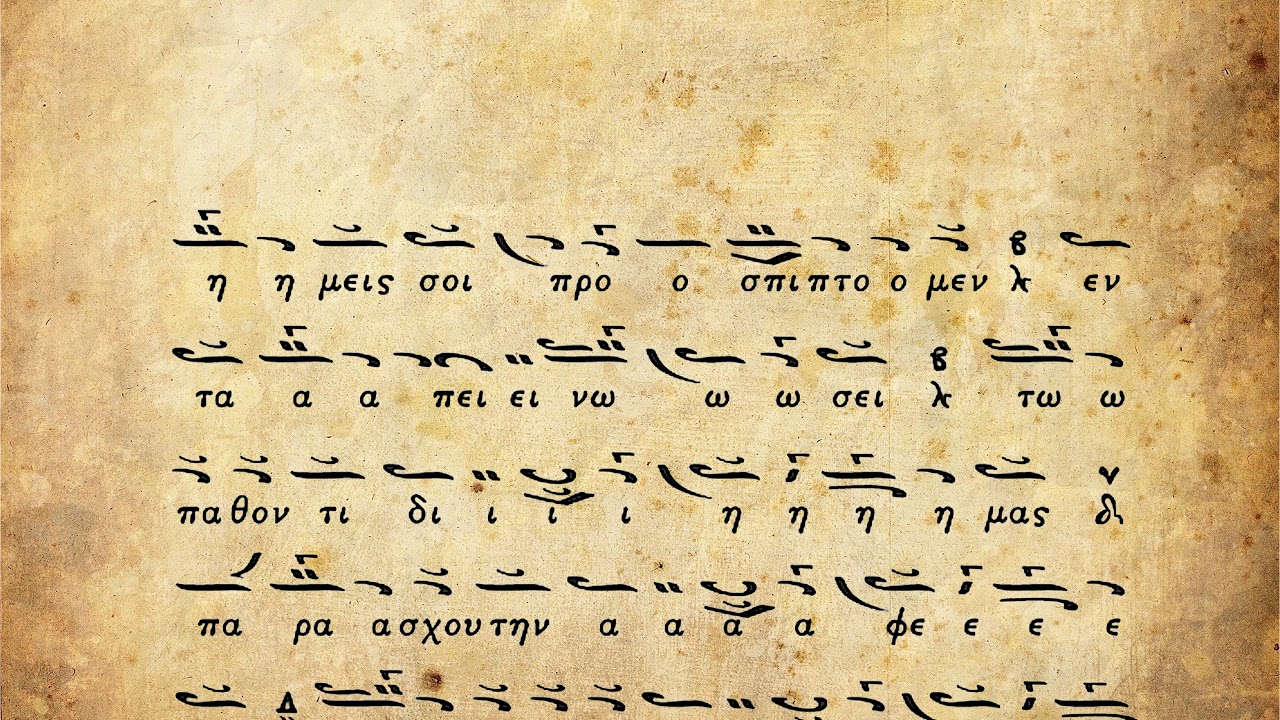 η η μεις σοι προ ο σπι πτο ο μεν λ εν
τα α α πει ει νω ω ω σει λ τω ω
πα θον τι δι ι ι ι η η η η μας δι
πα ρα α σχου την α α α α φε ε ε ε